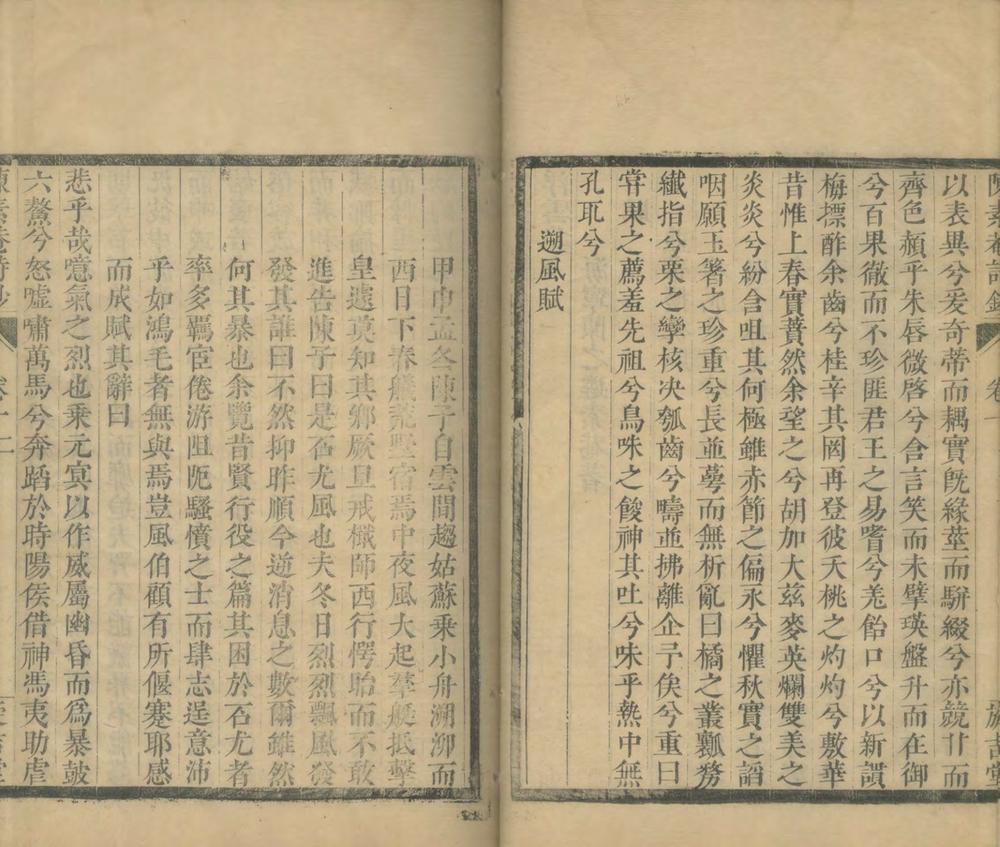 以表異兮爰奇蔕而耦實旣緣莖而駢綴兮亦競甘而
齊色頳乎朱唇微啓兮含言笑而未擘瑛盤升而在御
兮百果徹而不珍匪君王之易嗜兮羌飴口兮以新譔
梅摽酢余齒兮桂辛其罔再登彼夭桃之灼灼兮敷華
昔惟上春實蕡然余望之兮胡加大兹麥英爛雙美之
炎炎兮紛含咀其何極雖赤節之偏永兮懼秋實之謟
咽願玉箸之珍重兮長並蕚而無析亂曰橘之叢瓤剺
纖指兮栗之孿核決瓠齒兮疇並拂離企予俟兮重曰
甞果之薦羞先祖兮鳥味之餕神其吐兮味乎熱中無
孔耴兮
遡風賦
甲申孟冬陳子自雲間趨姑蘇乗小舟溯泖而
西日下舂艤荒墅宿焉中夜風大起羣艇抵擊
皇遽莫知其鄉厥旦戒檥師西行愕眙而不敢
進告陳子曰是石尤風也夫冬日烈烈飄風發
發其誰曰不然抑昨順今逆消息之數爾雖然
何其暴也余覽昔賢行役之篇其困於石尤者
率多羈宦倦游阻阨騷憤之士而肆志逞意沛
乎如鴻毛者無與焉豈風伯顧有所偃蹇耶感
而成賦其辭曰
悲乎哉噫氣之烈也乗元㝠以作威屬幽昏而爲暴皷
六鰲兮怒噓嘯萬馬兮奔蹈於時陽侯借神馮夷助虐